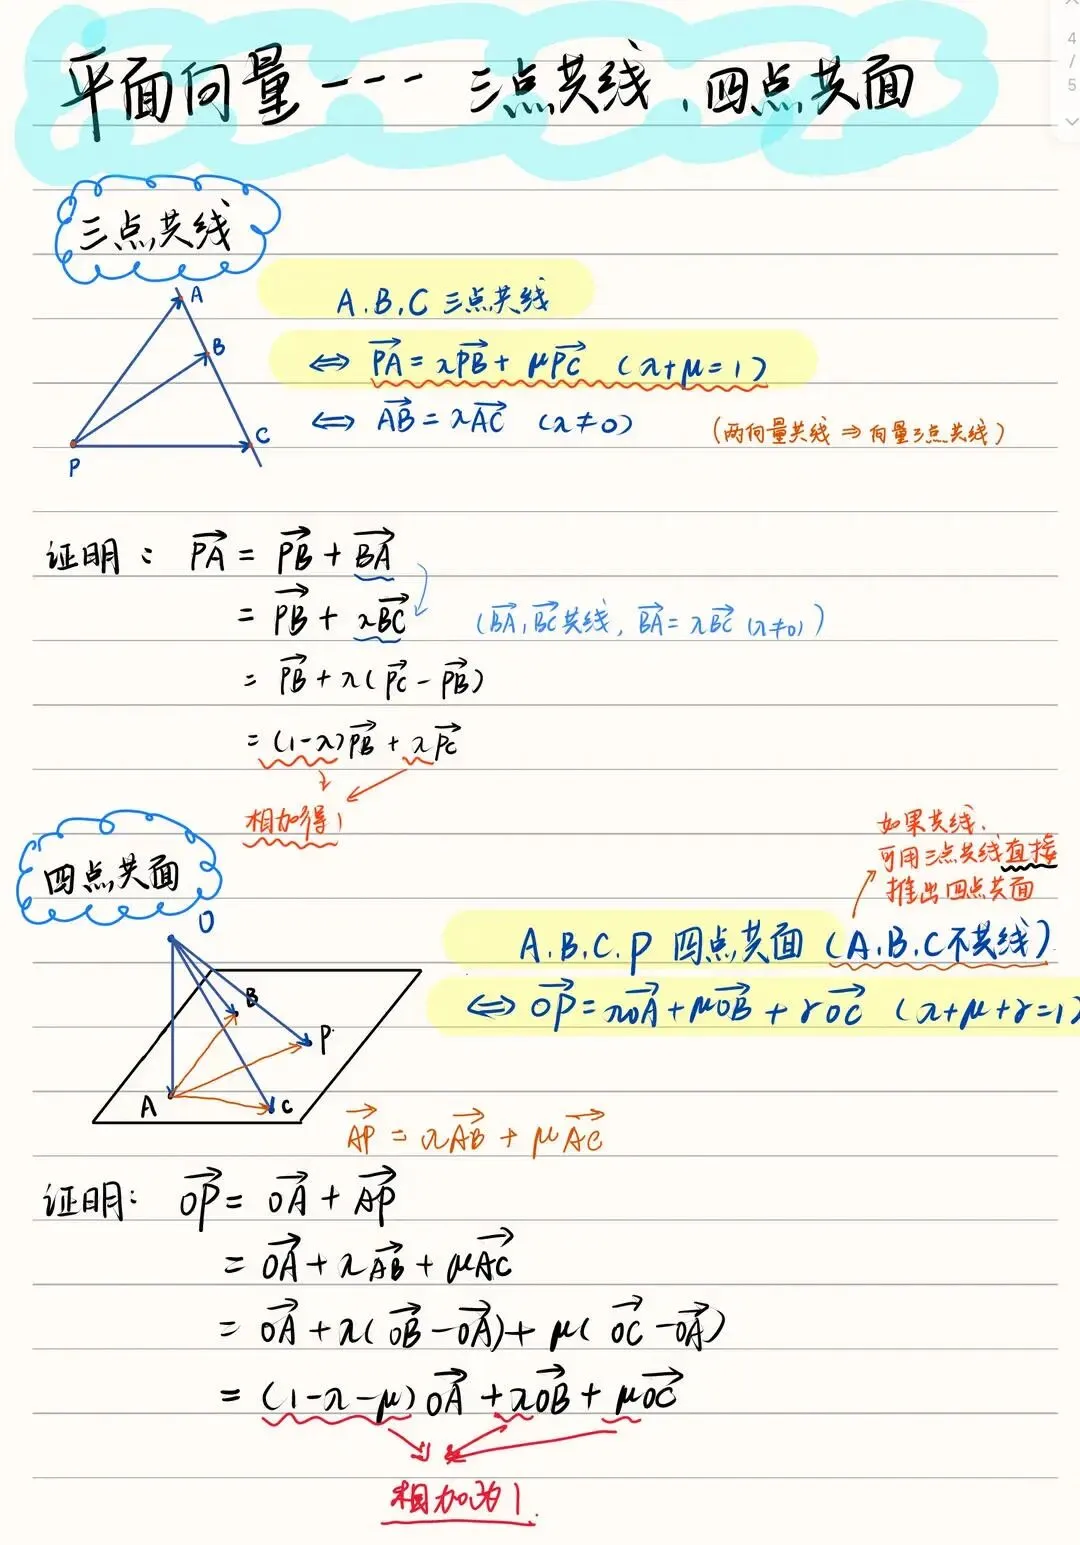 平面向量---三点共线、四点共面
4
/
5
三点共线
A
B
C
P
A.B.C 三点共线
⇔ PA→ = λPB→ + μPC→ (λ+μ=1)
⇔ AB→ = λAC→ (λ≠0)
(两向量共线 ⇒ 向量三点共线)
证明: PA→ = PB→ + BA→
= PB→ + λBC→
(BA→, BC→共线, BA→ = λBC→ (λ≠0))
= PB→ + λ(PC→ - PB→)
= (1-λ)PB→ + λPC→
相加得1
四点共面
如果共线、
可用三点共线直接
推出四点共面
A.B.C.P 四点共面 (A.B.C不共线)
⇔ OP→ = λOA→ + μOB→ + γOC→ (λ+μ+γ=1)
O
B
P
A
C
AP→ = λAB→ + μAC→
证明: OP→ = OA→ + AP→
= OA→ + λAB→ + μAC→
= OA→ + λ(OB→ - OA→) + μ(OC→ - OA→)
= (1-λ-μ)OA→ + λOB→ + μOC→
相加为1.